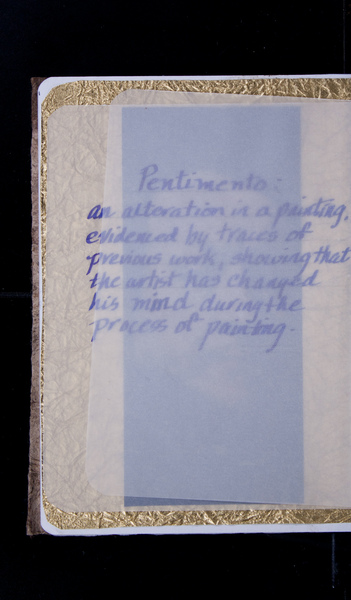 Pentimento:
an alteration in a painting,
evidenced by traces of
previous work, showing that
the artist has changed
his mind during the
process of painting.